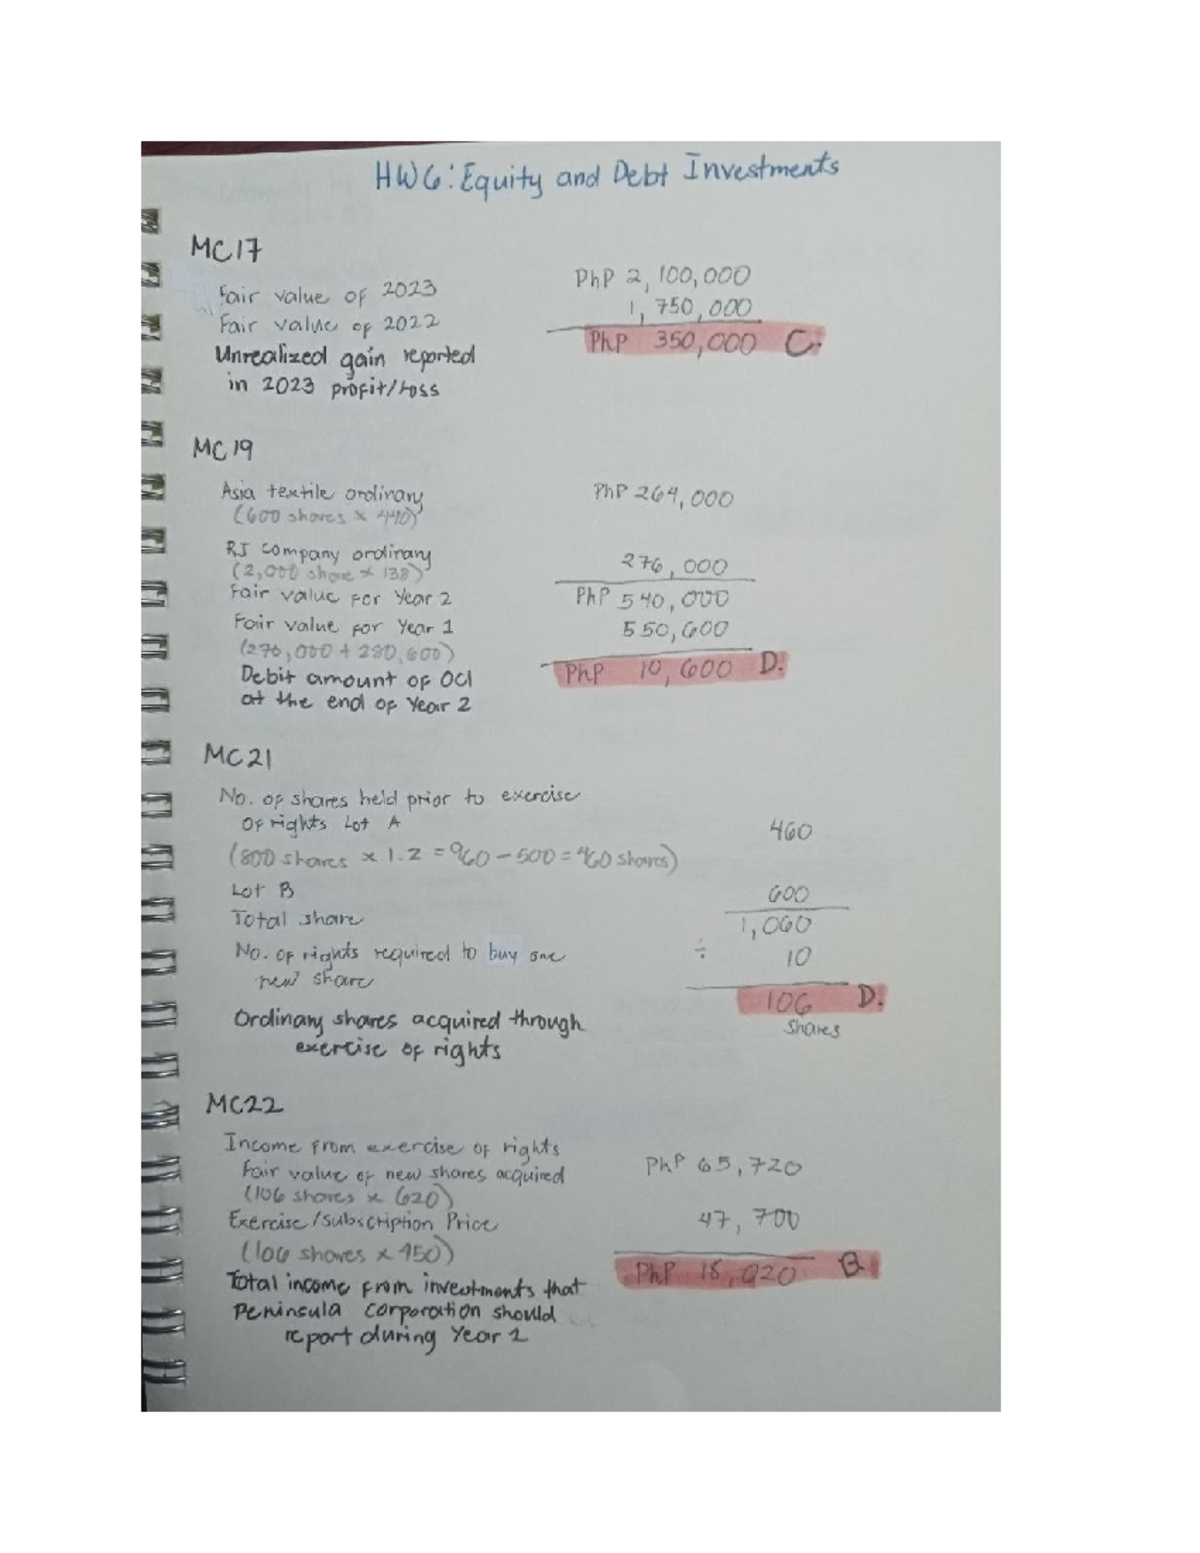 HW6: Equity and Debt Investments
MC17
Fair value of 2023 PhP 2,100,000
Fair value of 2022 1,750,000
Unrealized gain reported PhP 350,000 C.
in 2023 profit/loss
MC19
Asia textile ordinary PhP 264,000
(600 shares x 440)
RJ Company ordinary 276,000
(2,000 share x 138)
Fair value for Year 2 PhP 540,000
Fair value for Year 1 550,600
(270,000 + 280,600)
Debit amount of OCI PhP 10,600 D.
at the end of Year 2
MC21
No. of shares held prior to exercise
of rights Lot A 460
(800 shares x 1.2 = 960 - 500 = 460 shares)
Lot B 600
Total share 1,060
No. of rights required to buy one ÷ 10
new share
106 D.
Ordinary shares acquired through shares
exercise of rights
MC22
Income from exercise of rights
Fair value of new shares acquired PhP 65,720
(106 shares x 620)
Exercise/Subscription Price 47,700
(106 shares x 450)
Total income from investments that PhP 18,020 B.
Peninsula Corporation should
report during Year 1